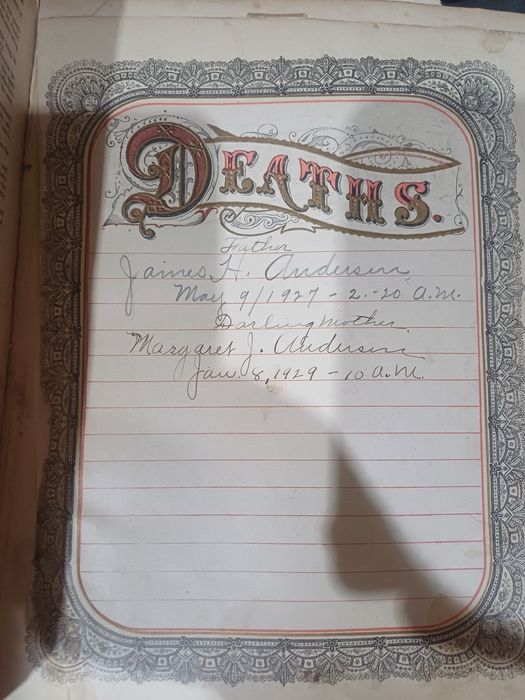 DEATHS.
Father
James H. Anderson
May 9/1927 - 2.-20 a.m.
Darling Mother
Margaret J. Anderson
Jan. 8, 1929 - 10 a.m.